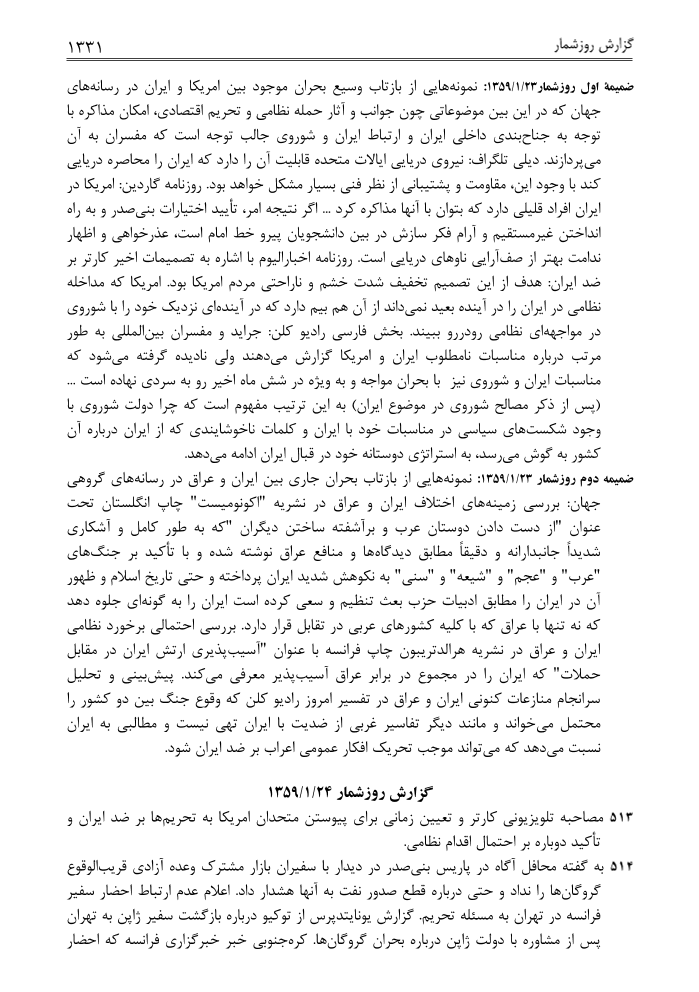 گزارش روزشمار
۱۳۳۱
ضمیمهٔ اول روزشمار۱۳۵۹/۱/۲۳: نمونه‌هایی از بازتاب وسیع بحران موجود بین امریکا و ایران در رسانه‌های
جهان که در این بین موضوعاتی چون جوانب و آثار حمله نظامی و تحریم اقتصادی، امکان مذاکره با
توجه به جناح‌بندی داخلی ایران و ارتباط ایران و شوروی جالب توجه است که مفسران به آن
می‌پردازند. دیلی تلگراف: نیروی دریایی ایالات متحده قابلیت آن را دارد که ایران را محاصره دریایی
کند با وجود این، مقاومت و پشتیبانی از نظر فنی بسیار مشکل خواهد بود. روزنامه گاردین: امریکا در
ایران افراد قلیلی دارد که بتوان با آنها مذاکره کرد ... اگر نتیجه امر، تأیید اختیارات بنی‌صدر و به راه
انداختن غیرمستقیم و آرام فکر سازش در بین دانشجویان پیرو خط امام است، عذرخواهی و اظهار
ندامت بهتر از صف‌آرایی ناوهای دریایی است. روزنامه اخبارالیوم با اشاره به تصمیمات اخیر کارتر بر
ضد ایران: هدف از این تصمیم تخفیف شدت خشم و ناراحتی مردم امریکا بود. امریکا که مداخله
نظامی در ایران را در آینده بعید نمی‌داند از آن هم بیم دارد که در آینده‌ای نزدیک خود را با شوروی
در مواجهه‌ای نظامی رودررو ببیند. بخش فارسی رادیو کلن: جراید و مفسران بین‌المللی به طور
مرتب درباره مناسبات نامطلوب ایران و امریکا گزارش می‌دهند ولی نادیده گرفته می‌شود که
مناسبات ایران و شوروی نیز با بحران مواجه و به ویژه در شش ماه اخیر رو به سردی نهاده است ...
(پس از ذکر مصالح شوروی در موضوع ایران) به این ترتیب مفهوم است که چرا دولت شوروی با
وجود شکست‌های سیاسی در مناسبات خود با ایران و کلمات ناخوشایندی که از ایران درباره آن
کشور به گوش می‌رسد، به استراتژی دوستانه خود در قبال ایران ادامه می‌دهد.
ضمیمه دوم روزشمار ۱۳۵۹/۱/۲۳: نمونه‌هایی از بازتاب بحران جاری بین ایران و عراق در رسانه‌های گروهی
جهان: بررسی زمینه‌های اختلاف ایران و عراق در نشریه "اکونومیست" چاپ انگلستان تحت
عنوان "از دست دادن دوستان عرب و برآشفته ساختن دیگران "که به طور کامل و آشکاری
شدیداً جانبدارانه و دقیقاً مطابق دیدگاه‌ها و منافع عراق نوشته شده و با تأکید بر جنگ‌های
"عرب" و "عجم" و "شیعه" و "سنی" به نکوهش شدید ایران پرداخته و حتی تاریخ اسلام و ظهور
آن در ایران را مطابق ادبیات حزب بعث تنظیم و سعی کرده است ایران را به گونه‌ای جلوه دهد
که نه تنها با عراق که با کلیه کشورهای عربی در تقابل قرار دارد. بررسی احتمالی برخورد نظامی
ایران و عراق در نشریه هرالدتریبون چاپ فرانسه با عنوان "آسیب‌پذیری ارتش ایران در مقابل
حملات" که ایران را در مجموع در برابر عراق آسیب‌پذیر معرفی می‌کند. پیش‌بینی و تحلیل
سرانجام منازعات کنونی ایران و عراق در تفسیر امروز رادیو کلن که وقوع جنگ بین دو کشور را
محتمل می‌خواند و مانند دیگر تفاسیر غربی از ضدیت با ایران تهی نیست و مطالبی به ایران
نسبت می‌دهد که می‌تواند موجب تحریک افکار عمومی اعراب بر ضد ایران شود.
گزارش روزشمار ۱۳۵۹/۱/۲۴
۵۱۳ مصاحبه تلویزیونی کارتر و تعیین زمانی برای پیوستن متحدان امریکا به تحریم‌ها بر ضد ایران و
تأکید دوباره بر احتمال اقدام نظامی.
۵۱۴ به گفته محافل آگاه در پاریس بنی‌صدر در دیدار با سفیران بازار مشترک وعده آزادی قریب‌الوقوع
گروگان‌ها را نداد و حتی درباره قطع صدور نفت به آنها هشدار داد. اعلام عدم ارتباط احضار سفیر
فرانسه در تهران به مسئله تحریم. گزارش یونایتدپرس از توکیو درباره بازگشت سفیر ژاپن به تهران
پس از مشاوره با دولت ژاپن درباره بحران گروگان‌ها. کره‌جنوبی خبر خبرگزاری فرانسه که احضار